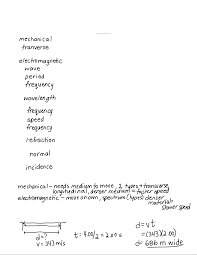 mechanical
tranverse
electromagnetic
wave
period
frequency
wavelength
frequency
speed
frequency
refraction
normal
incidence
mechanical - needs medium to move, 2 types → transverse,
longitudinal, denser medium = faster speed
electromagnetic - moves on own, spectrum (types) denser
materials
slower speed
d=?
v = 343 m/s
t = 4.00/2 = 2.00 s
d = vt
= (343)(2.00)
d = 686 m wide